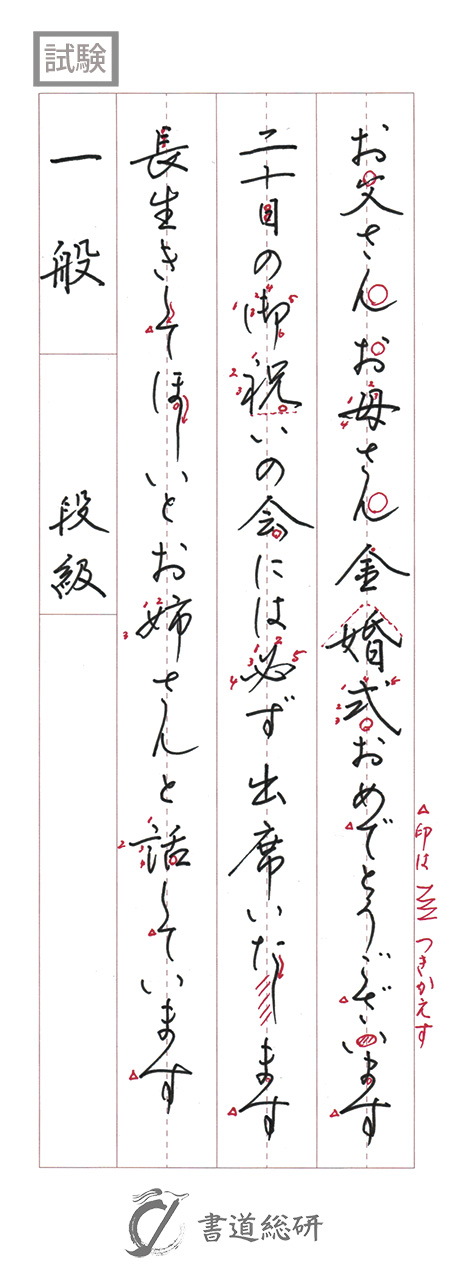 試験
お父さんお母さん金婚式おめでとうございます
二十日の御祝いの会には必ず出席いたします
長生きしてほしいとお姉さんと話しています
一般
段級
△印は つきかえす
書道総研